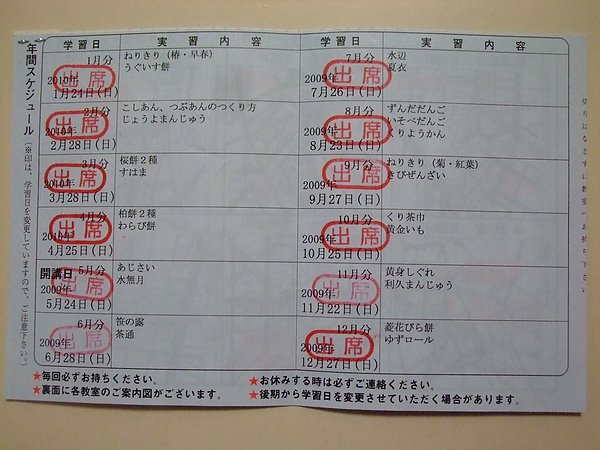 年間スケジュール（※印は、学習日を変更していますので、ご注意下さい。）
学習日 実習内容
1月分 ねりきり（椿・早春）
2010年 うぐいす餅
1月24日(日)
出席
2月分 こしあん、つぶあんのつくり方
2010年 じょうよまんじゅう
2月28日(日)
出席
3月分 桜餅２種
2010年 すはま
3月28日(日)
出席
4月分 柏餅２種
2010年 わらび餅
4月25日(日)
出席
開講日 5月分 あじさい
2009年 水無月
5月24日(日)
出席
6月分 笹の露
2009年 茶通
6月28日(日)
出席
学習日 実習内容
7月分 水辺
2009年 夏衣
7月26日(日)
出席
8月分 ずんだだんご
2009年 いそべだんご
8月23日(日) くりようかん
出席
9月分 ねりきり（菊・紅葉）
2009年 きびぜんざい
9月27日(日)
出席
10月分 くり茶巾
2009年 黄金いも
10月25日(日)
出席
11月分 黄身しぐれ
2009年 利久まんじゅう
11月22日(日)
出席
12月分 菱花びら餅
2009年 ゆずロール
12月27日(日)
出席
★毎回必ずお持ちください。
★裏面に各教室のご案内図がございます。
★お休みする時は必ずご連絡ください。
★後期から学習日を変更させていただく場合があります。
切りはなさずに教室へお持ち下さい